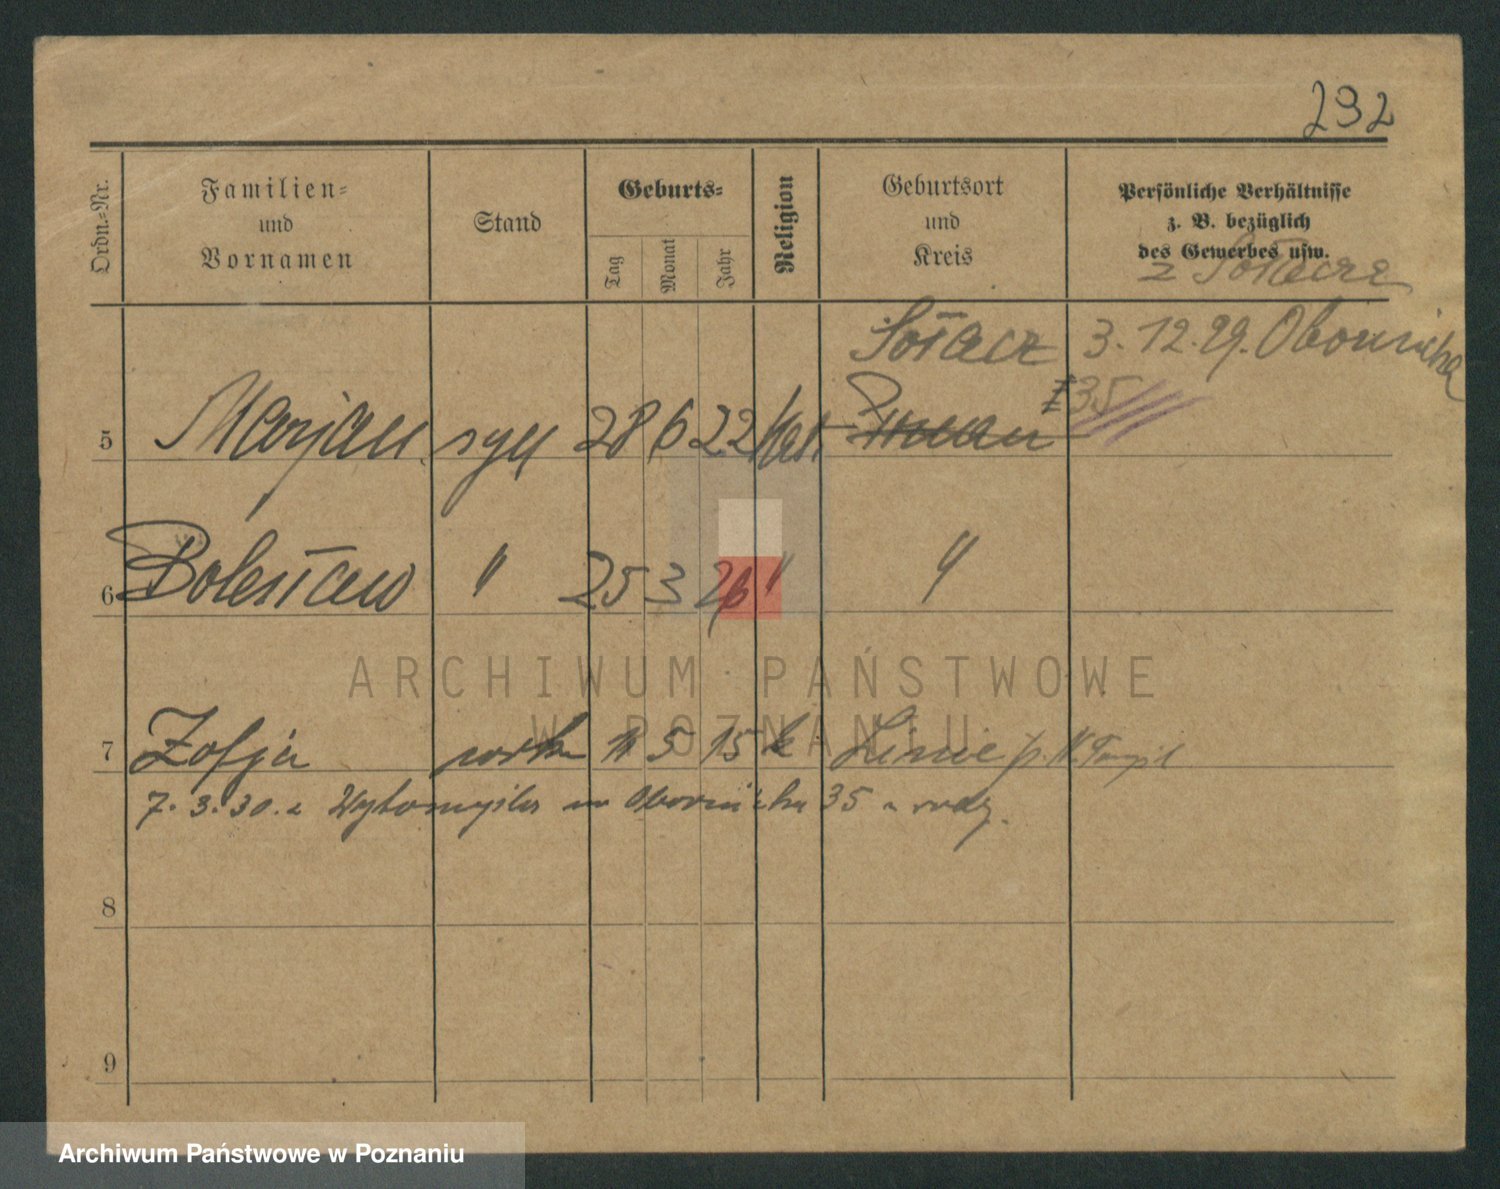 292
Ordn.-Nr.
Familien-
und
Vornamen
Stand
Geburts-
Tag
Monat
Jahr
Religion
Geburtsort
und
Kreis
Persönliche Verhältnisse
z. B. bezüglich
des Gewerbes usw.
z Sołacza
Sołacz 3.12.29. Obornicka
35
5 Marjan syn 28 6 22 kat.
6 Bolesław " 25 3 26 " "
ARCHIWUM PAŃSTWOWE
W POZNANIU
7 Zofja 11 5 15 k Linie p. N. Tomyśl
7. 3. 30. z Wytomyśla na Obornicka 35
8
9
Archiwum Państwowe w Poznaniu